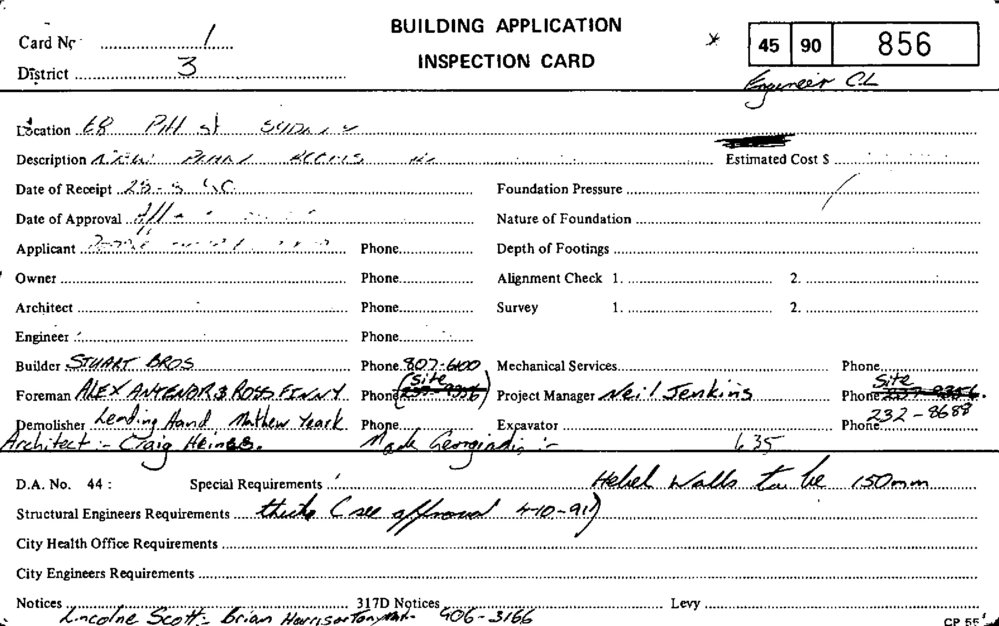 BUILDING APPLICATION
INSPECTION CARD
Card No 1
* 45 90 856
District 3
Engineer CL
Location 68 Pitt St SYDNEY
Description NEW Estimated Cost $
Date of Receipt Foundation Pressure
Date of Approval Nature of Foundation
Applicant Phone Depth of Footings
Owner Phone Alignment Check 1. 2.
Architect Phone Survey 1. 2.
Engineer Phone
Builder STUART BROS Phone 807-6100 Mechanical Services Phone
Foreman ALEX & ROSS FINNY Phone (Site) Project Manager Neil Jenkins Phone Site
Demolisher Leading Hand Mathew Phone Excavator Phone 232-8688
Architect :- Craig Georgiadis :- 635
D.A. No. 44 : Special Requirements Hebel Walls to be 150mm
Structural Engineers Requirements thick (see approval 4-10-91)
City Health Office Requirements
City Engineers Requirements
Notices 317D Notices Levy
Lincolne Scott :- Brian Harrison 906-3166
CP 55